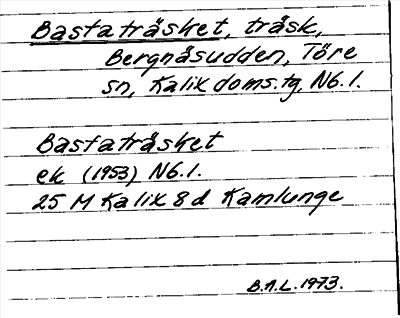 Bastaträsket, träsk,
Bergnäsudden, Töre
sn, Kalix doms.tg, Nb.l.
Bastaträsket
ek (1953) Nb.l.
25 M Kalix 8d Kamlunge
B.A.L. 1973.